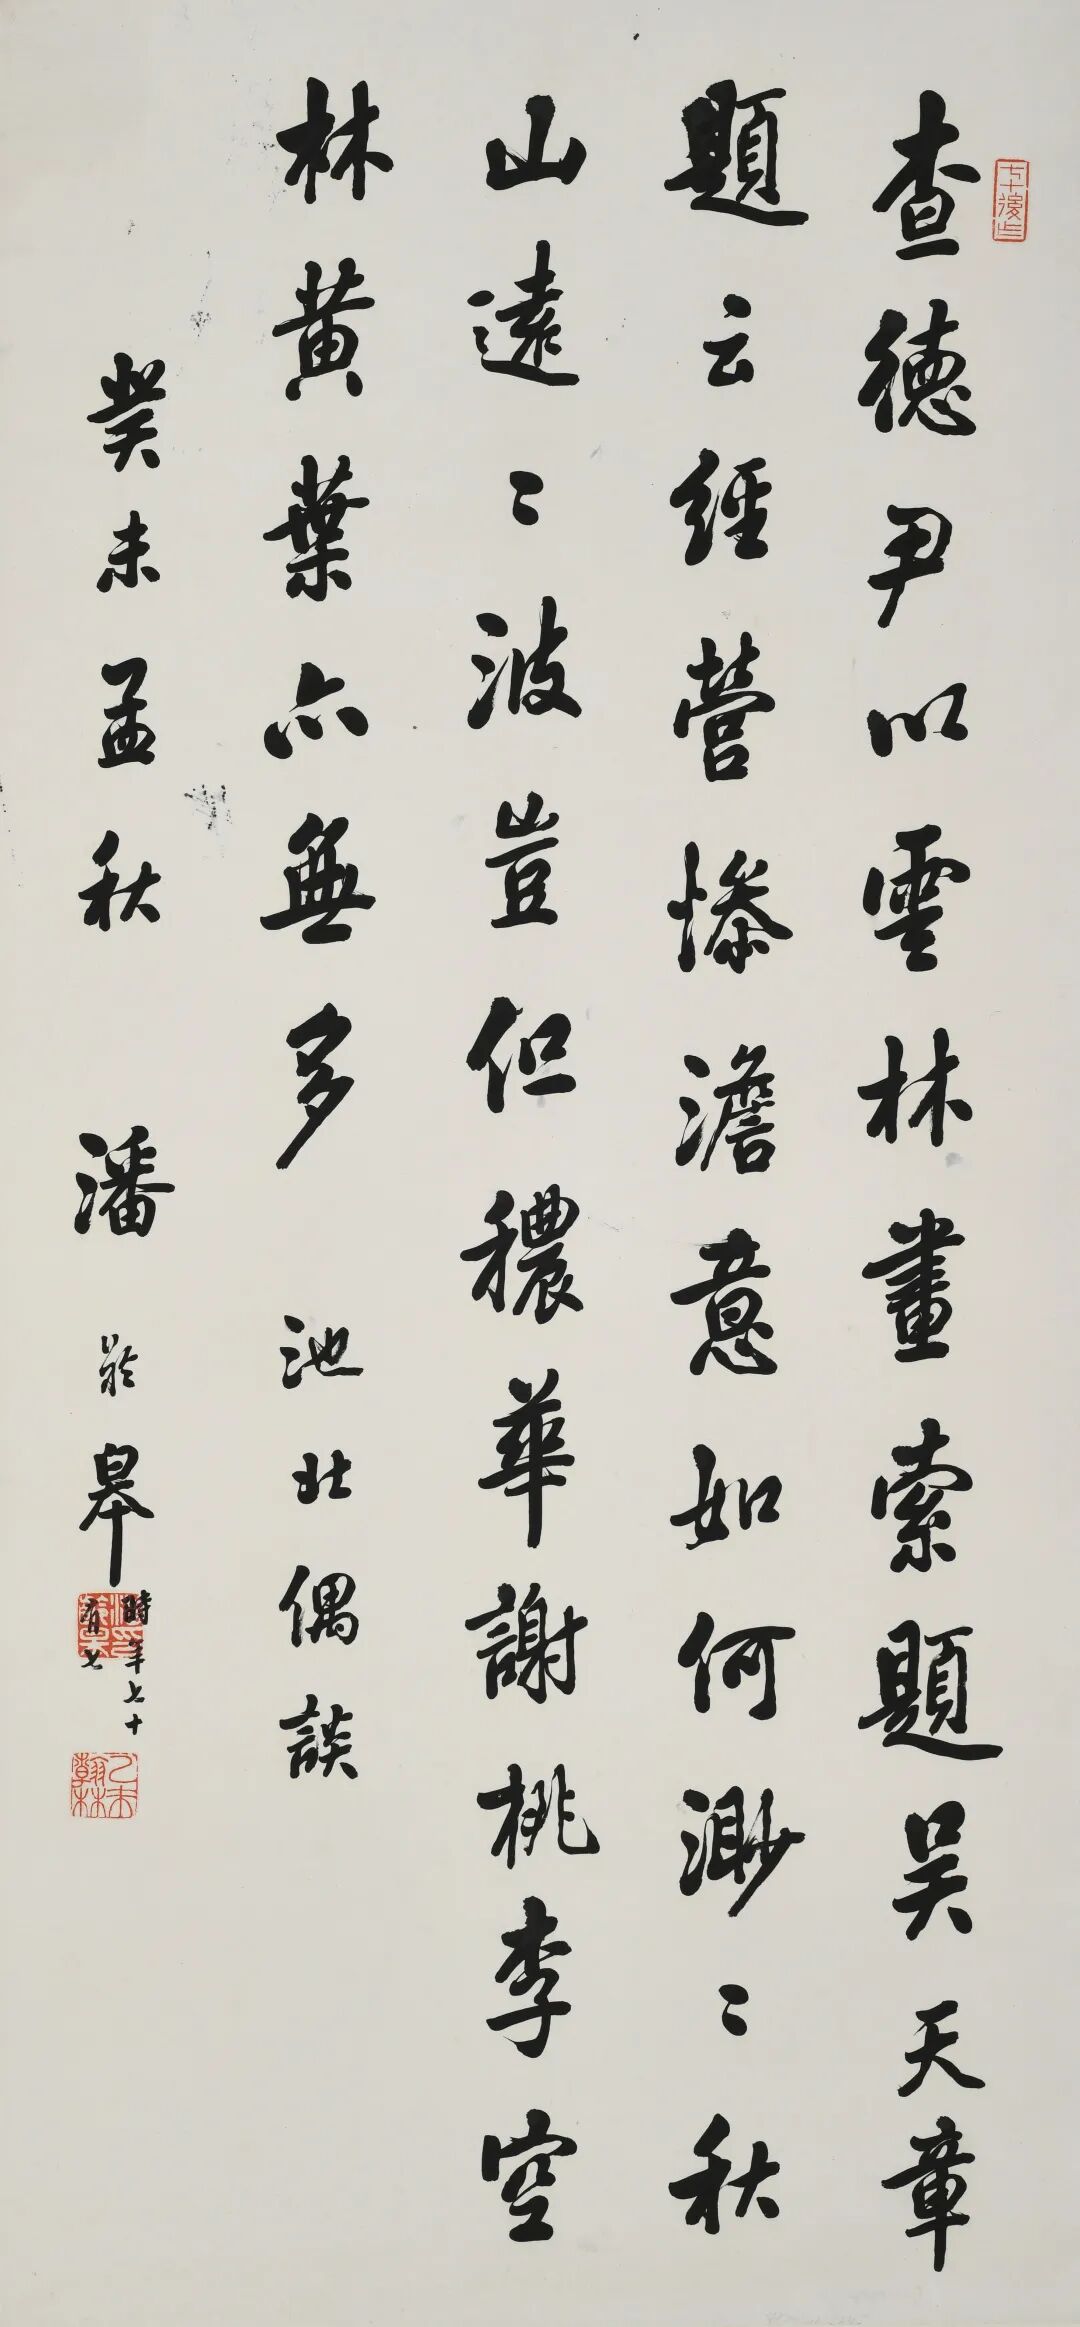 查德尹以雲林畫索題吳天章
題云經營慘澹意如何渺〻秋
山遠〻波豈但穠華謝桃李空
林黃葉亦無多 池北偶談
癸未孟秋 潘齡皋
時年七十
有七
乙未翰林